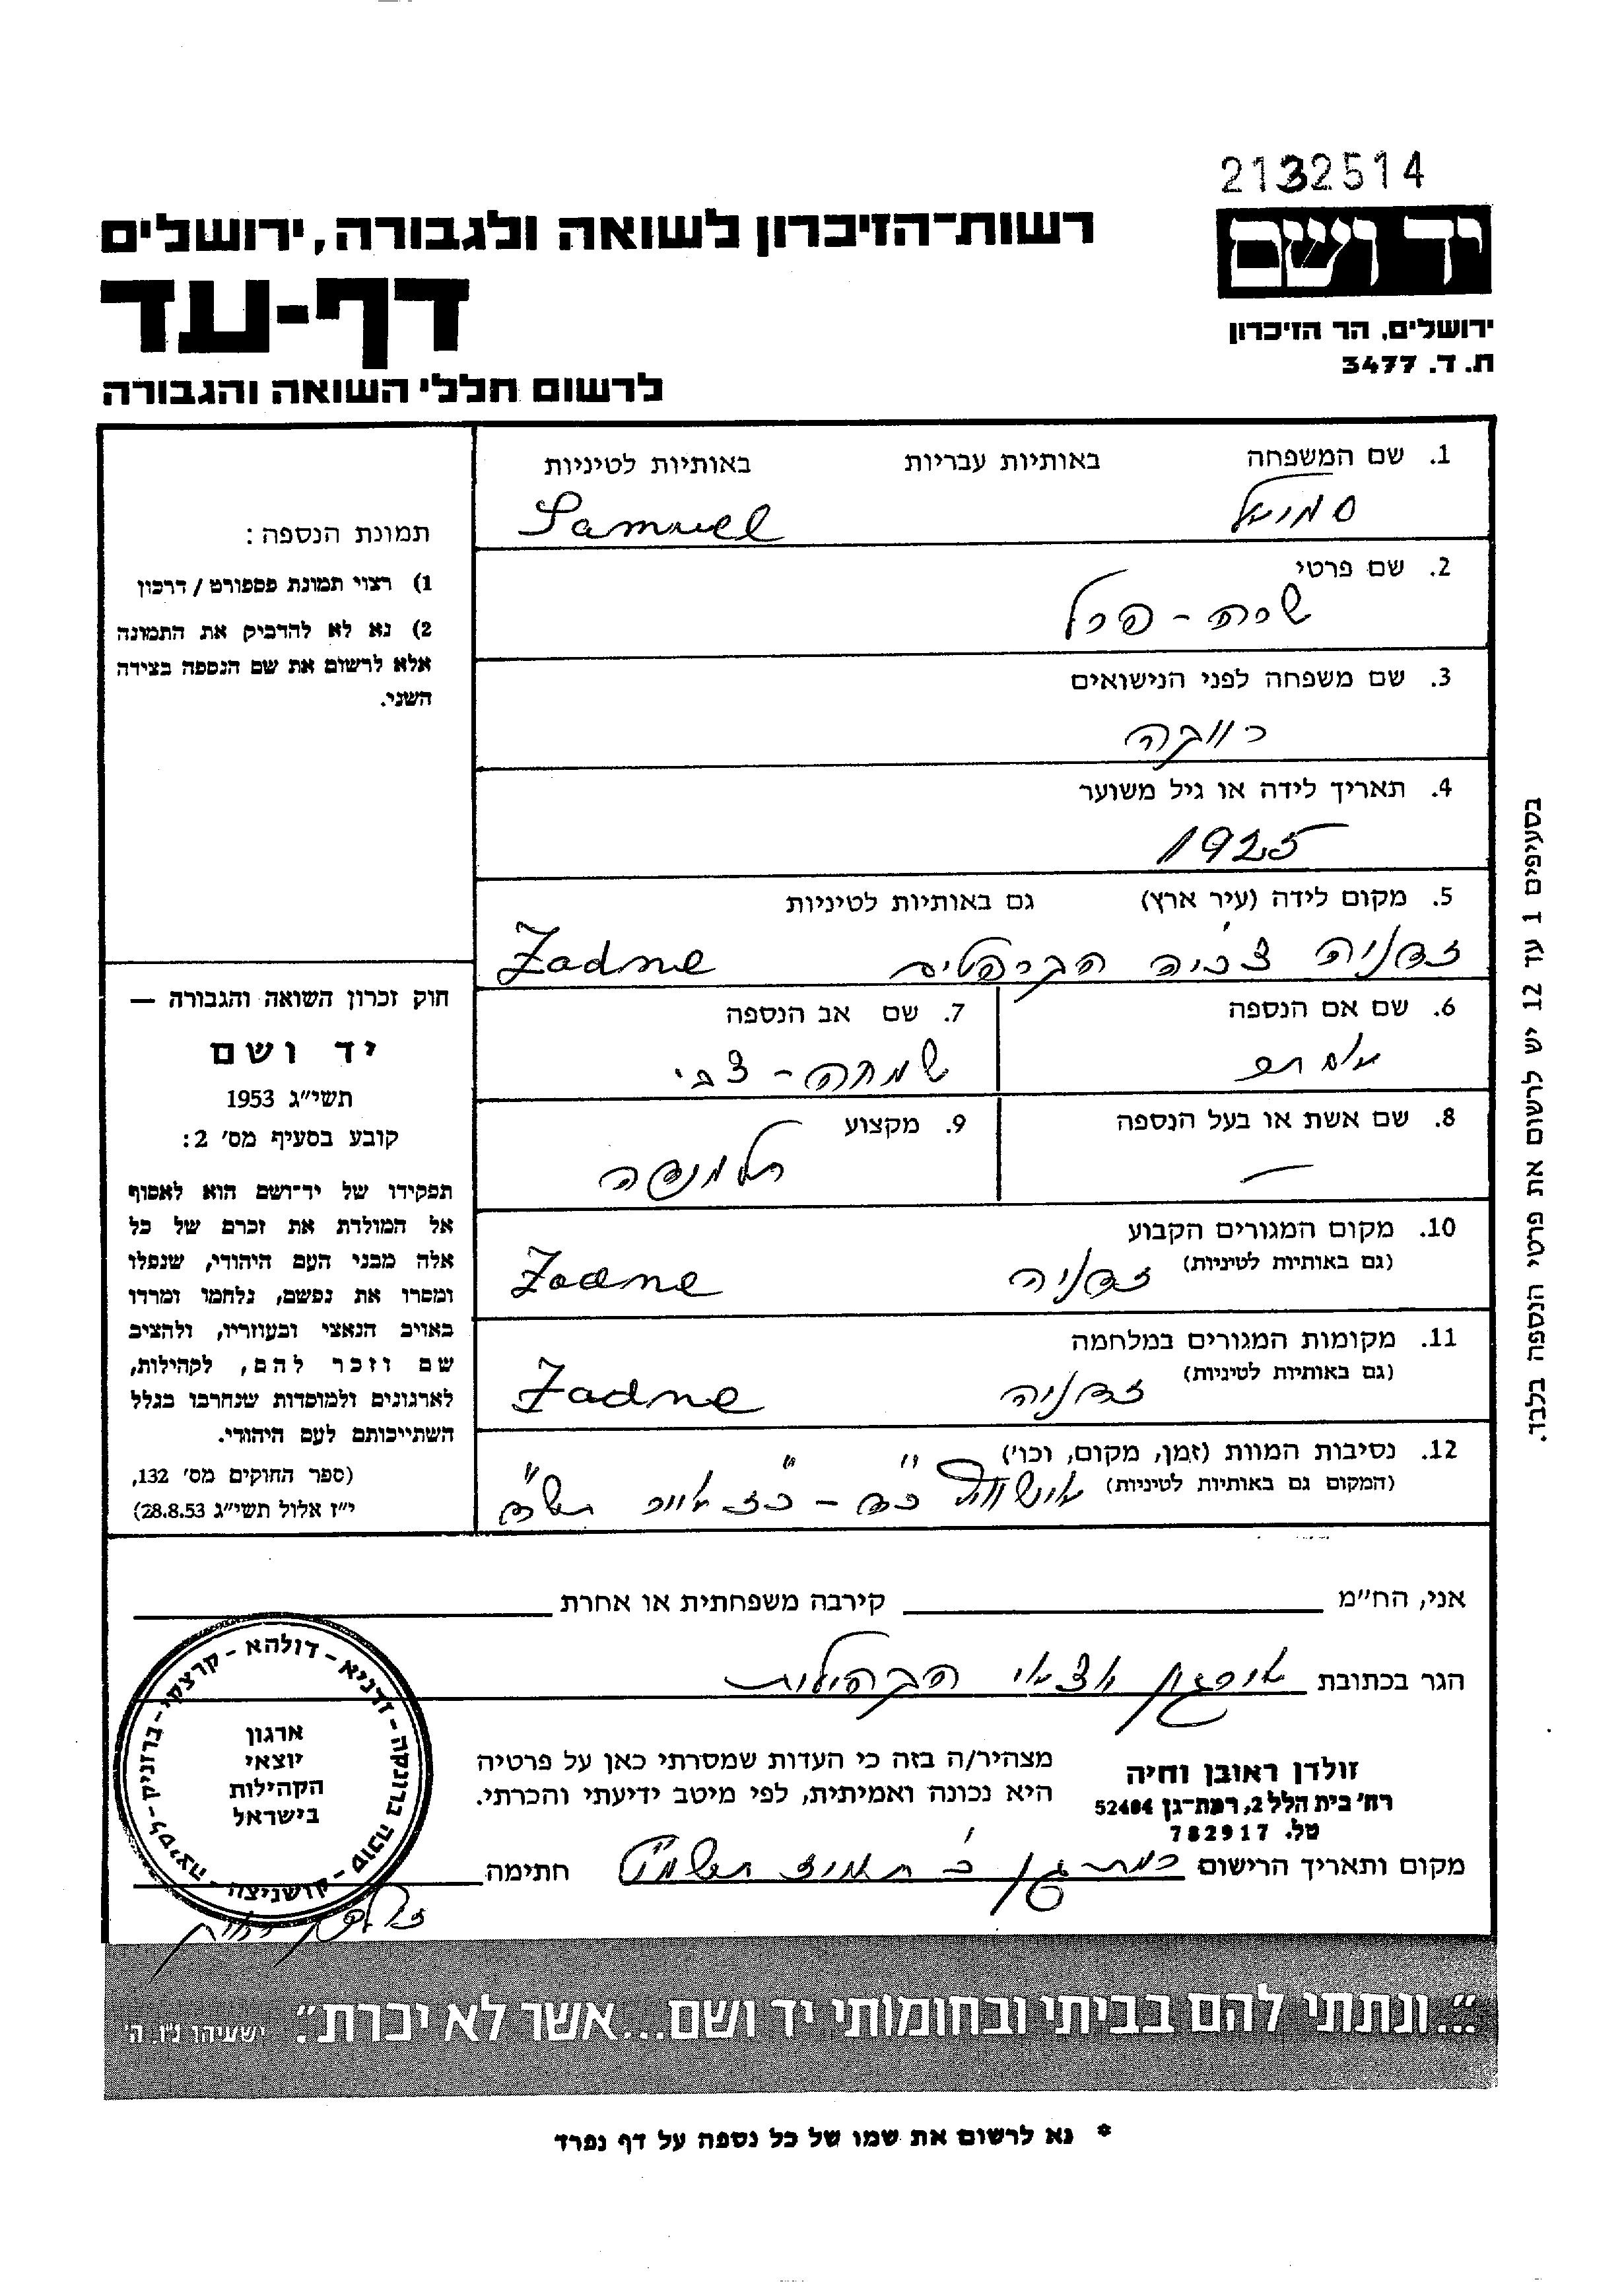 2132514
יד ושם
ירושלים, הר הזיכרון
ת. ד. 3477
רשות-הזיכרון לשואה ולגבורה, ירושלים
דף-עד
לרשום חללי השואה והגבורה
1. שם המשפחה באותיות עבריות באותיות לטיניות
סמואל Samuel
2. שם פרטי
שרה - פרל
3. שם משפחה לפני הנישואים
רווקה
4. תאריך לידה או גיל משוער
1925
5. מקום לידה (עיר ארץ) גם באותיות לטיניות
זדניה צ'כיה הקרפטים Zadne
6. שם אם הנספה 7. שם אב הנספה
אסתר שמחה - צבי
8. שם אשת או בעל הנספה 9. מקצוע
— תלמידה
10. מקום המגורים הקבוע
(גם באותיות לטיניות) זדניה Zadne
11. מקומות המגורים במלחמה
(גם באותיות לטיניות) זדניה Zadne
12. נסיבות המוות (זמן, מקום, וכו')
(המקום גם באותיות לטיניות) אושוויץ כ"ד - כ"ז אייר תש"ד
תמונת הנספה:
1) רצוי תמונת פספורט / דרכון
2) נא לא להדביק את התמונה
אלא לרשום את שם הנספה בצידה
השני.
חוק זכרון השואה והגבורה —
יד ושם
תשי"ג 1953
קובע בסעיף מס' 2:
תפקידו של יד-ושם הוא לאסוף
אל המולדת את זכרם של כל
אלה מבני העם היהודי, שנפלו
ומסרו את נפשם, נלחמו ומרדו
באויב הנאצי ובעוזריו, ולהציב
שם וזכר להם, לקהילות,
לארגונים ולמוסדות שנחרבו בגלל
השתייכותם לעם היהודי.
(ספר החוקים מס' 132,
י"ז אלול תשי"ג 28.8.53)
בסעיפים 1 עד 12 יש לרשום את פרטי הנספה בלבד.
אני, הח"מ קירבה משפחתית או אחרת
הגר בכתובת ארגון יוצאי הקהילות
זולדן ראובן וחיה
רח' בית הלל 2, רמת-גן 52484
טל. 782917
מצהיר/ה בזה כי העדות שמסרתי כאן על פרטיה
היא נכונה ואמיתית, לפי מיטב ידיעתי והכרתי.
מקום ותאריך הרישום רמת גן תמוז חתימה
ארגון
יוצאי
הקהילות
בישראל
דולהא - קרצקי - ברוניקה - לסיצה - קושניצה - סוכה ברונקה - זדניא
"...ונתתי להם בביתי ובחומותי יד ושם...אשר לא יכרת". ישעיהו נ"ו. ה'
* נא לרשום את שמו של כל נספה על דף נפרד